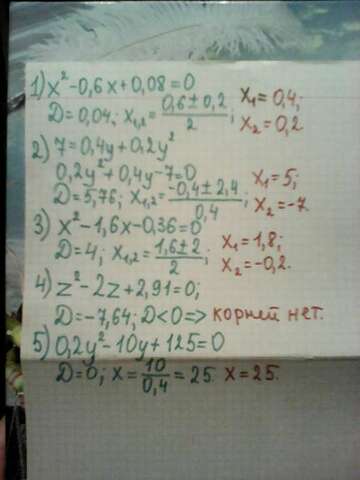 1) x²-0,6x+0,08=0
D=0,04; x₁,₂=(0,6±0,2)/2; x₁=0,4;
x₂=0,2
2) 7=0,4y+0,2y²
0,2y²+0,4y-7=0
D=5,76; x₁,₂=(-0,4±2,4)/0,4; x₁=5;
x₂=-7
3) x²-1,6x-0,36=0
D=4; x₁,₂=(1,6±2)/2; x₁=1,8;
x₂=-0,2.
4) z²-2z+2,91=0;
D=-7,64; D<0=> корней нет.
5) 0,2y²-10y+125=0
D=0; x=10/0,4=25. x=25.